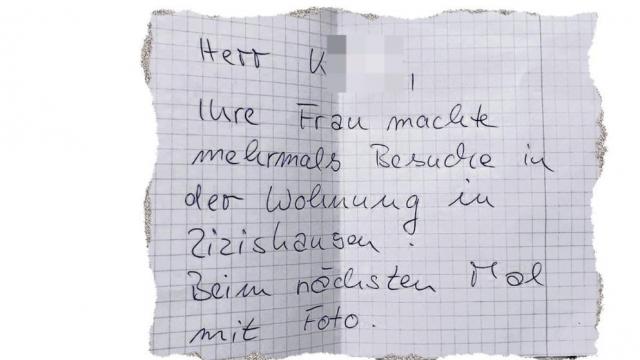 Herr K
Ihre Frau machte
mehrmals Besuche in
der Wohnung in
Zizishausen.
Beim nächsten Mal
mit Foto.